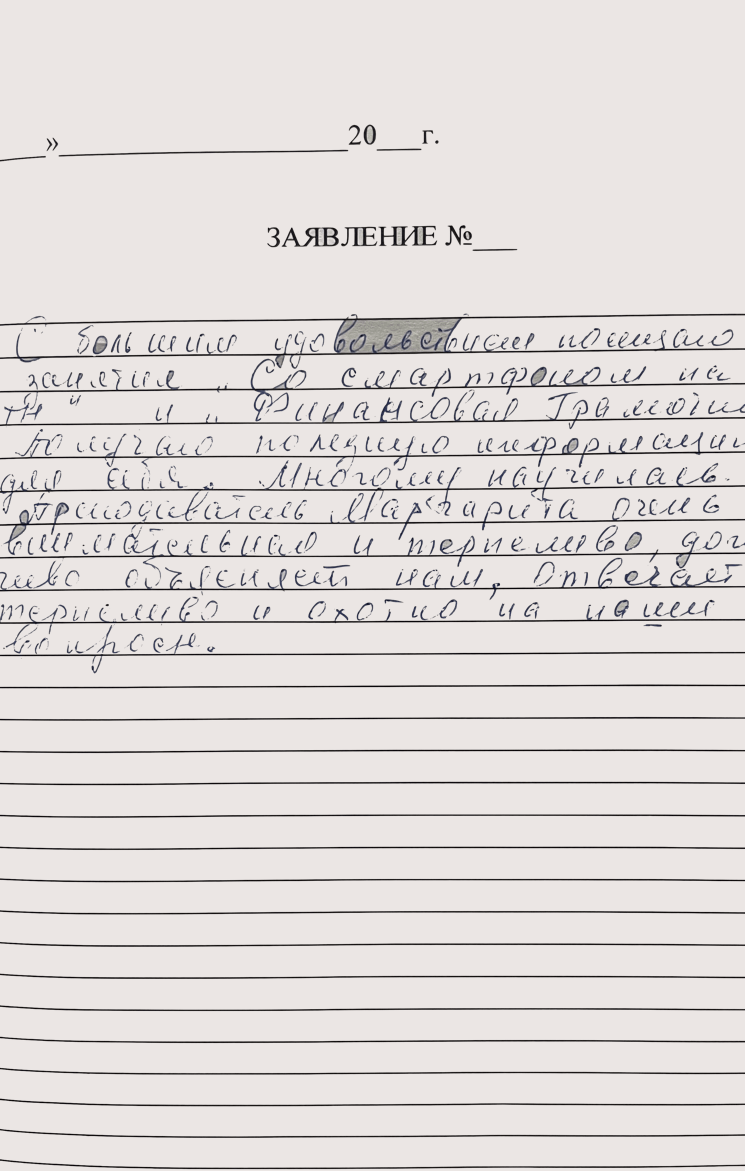 » 20 г.
ЗАЯВЛЕНИЕ №
С большим удовольствием посещаю
занятия „Со смартфоном на
ты" и „Финансовая Грамотн
Получаю полезную информацию
для себя. Многому научилась.
Преподаватель Маргарита очень
внимательно и терпеливо, дот
чиво объясняет нам, Отвечает
терпеливо и охотно на наши
вопросы.